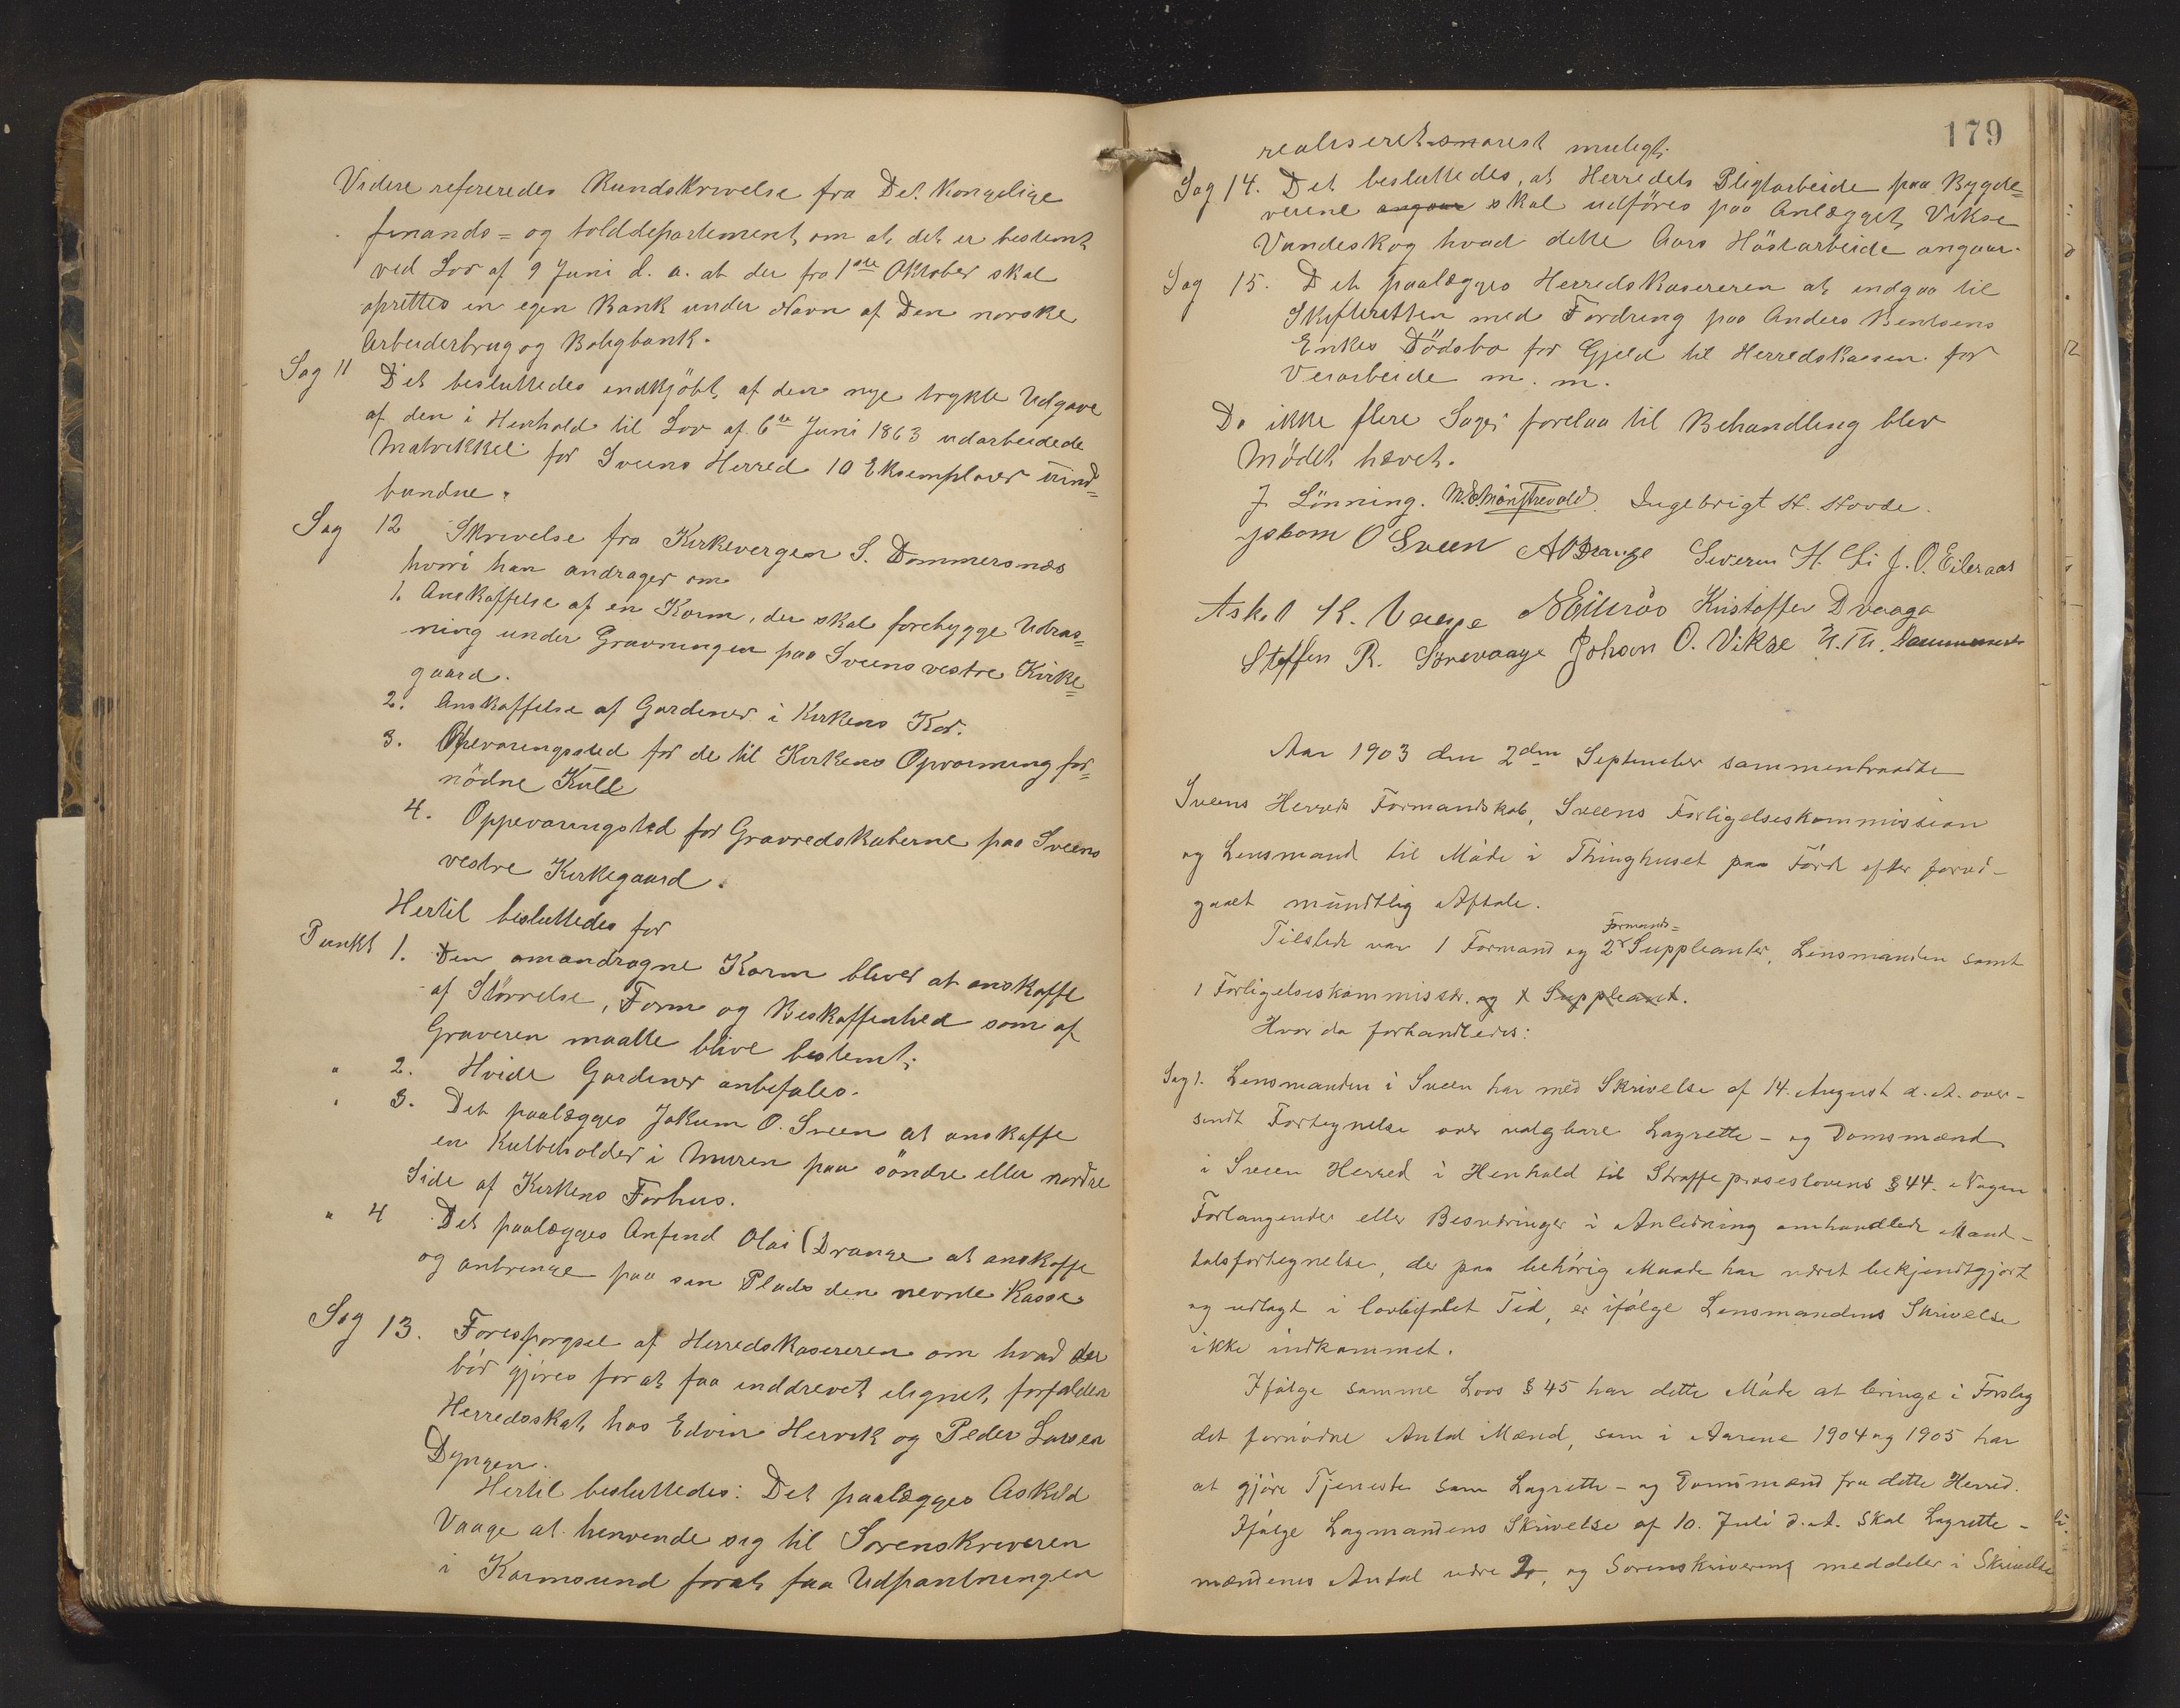 Videre refereredes Rundskrivelse fra Det Kongelige
finands= og tolddepartement, om at det er bestemt
ved Lov af 9 Juni d. a. at der fra 1ste Oktober skal
oprettes en egen Bank under Navn af Den norske
Arbeiderbrug og Boligbank.
Sag 11 Det besluttedes indkjöbt af den nye trykte Udgave
af den i Henhold til Lov af 6te Juni 1863 udarbeidede
Matrikkel for Sveens Herred 10 Eksemplarer uind=
bundne.
Sag 12 Skrivelse fra Kirkevergen S. Dommersnæs
hvori han andrager om
1. Anskaffelse af en Karm, der skal forebygge Udras=
ning under Gravningen paa Sveens vestre Kirke=
gaard.
2. Anskaffelse af Gardiner i Kirkens Kor.
3. Opevaringssted for de til Kirkens Opvarming for=
nödne Kull
4. Oppevaringsted for Gravredskaberne paa Sveens
vestre Kirkegaard.
Hertil besluttedes for
Punkt 1. Den omandragne Karm bliver at anskaffe
af Störrelse, Form og Beskaffenhed som af
Graveren maatte blive bestemt.
" 2. Hvide Gardiner anbefales.
" 3. Det paalægges Jakum O. Sveen at anskaffe
en Kulbeholder i Muren paa söndre eller nordre
Side af Kirkens Forhus.
" 4 Det paalægges Anfind Olai Drange at anskaffe
og anbringe paa sin Plads den nevnte Kasse
Sag 13. Forespörgsel af Herredskasereren om hvad der
bör gjöres for at faa inddrevet ilignet, forfalden
Herredsskat hos Edvin Hervik og Peder Larsen
Dyngen.
Hertil besluttedes: Det paalægges Askild
Vaage at henvende sig til Sorenskriveren
i Karmsund forat faa Udpantningen
179
realiseret snarest muligt.
Sag 14. Det besluttedes, at Herredets Pligtarbeide paa Bygde=
veiene angaar skal udföres paa Anlægget Vikse
Vandeskog hvad dette Aars Höstarbeide angaar.
Sag 15. Det paalægges Herredskasereren at indgaa til
Skifteretten med Fordring paa Anders Bentsens
Enkes Dödsbo for Gjeld til Herredskassen for
Veiarbeide m. m.
Da ikke flere Sager forelaa til Behandling blev
Mödet hævet.
J. Lönning. M. E. Mönstrevold. Ingebrigt H. Hovde.
Jokom O Sveen A O Drange Severin H. Li J. O. Eileraas
Askel K. Vaage N Eileraas Kristoffer D vaaga
Steffen R. Sörevaage Johan O. Vikse
Aar 1903 den 2den September sammentraadte
Sveens Herreds Formandskab, Sveens Forligelseskommission
og Lensmand til Möde i Thinghuset paa Förde efter forud-
gaaet mündtlig Aftale.
Formands=
Tilstede var 1 Formand og 2 Suppleanter, Lensmanden samt
1 Forligelseskommissær. og 1 Suppleant.
Hvor da forhandledes:
Sag 1. Lensmanden i Sveen har med Skrivelse af 14. August d. A. over-
sendt Fortegnelse over valgbare Lagrette- og Domsmænd
i Sveen Herred i Henhold til Straffeproseslovens § 44. Nogen
Forlangender eller Besværinger i Anledning omhandlede Mand-
talsfortegnelse, der paa behörig Maade har været bekjendtgjort
og udlagt i lovbefalet Tid, er ifölge Lensmandens Skrivelse
ikke indkommet.
Ifölge samme Lovs § 45 har dette Möde at bringe i Forslag
det fornödne Antal Mænd, som i Aarene 1904 og 1905 har
at gjöre Tjeneste som Lagrette- og Domsmænd fra dette Herred.
Ifölge Lagmandens Skrivelse af 10. Juli d. A. skal Lagrette-
mændenes Antal være 2, og Sorenskriveren meddeler i Skrivelse